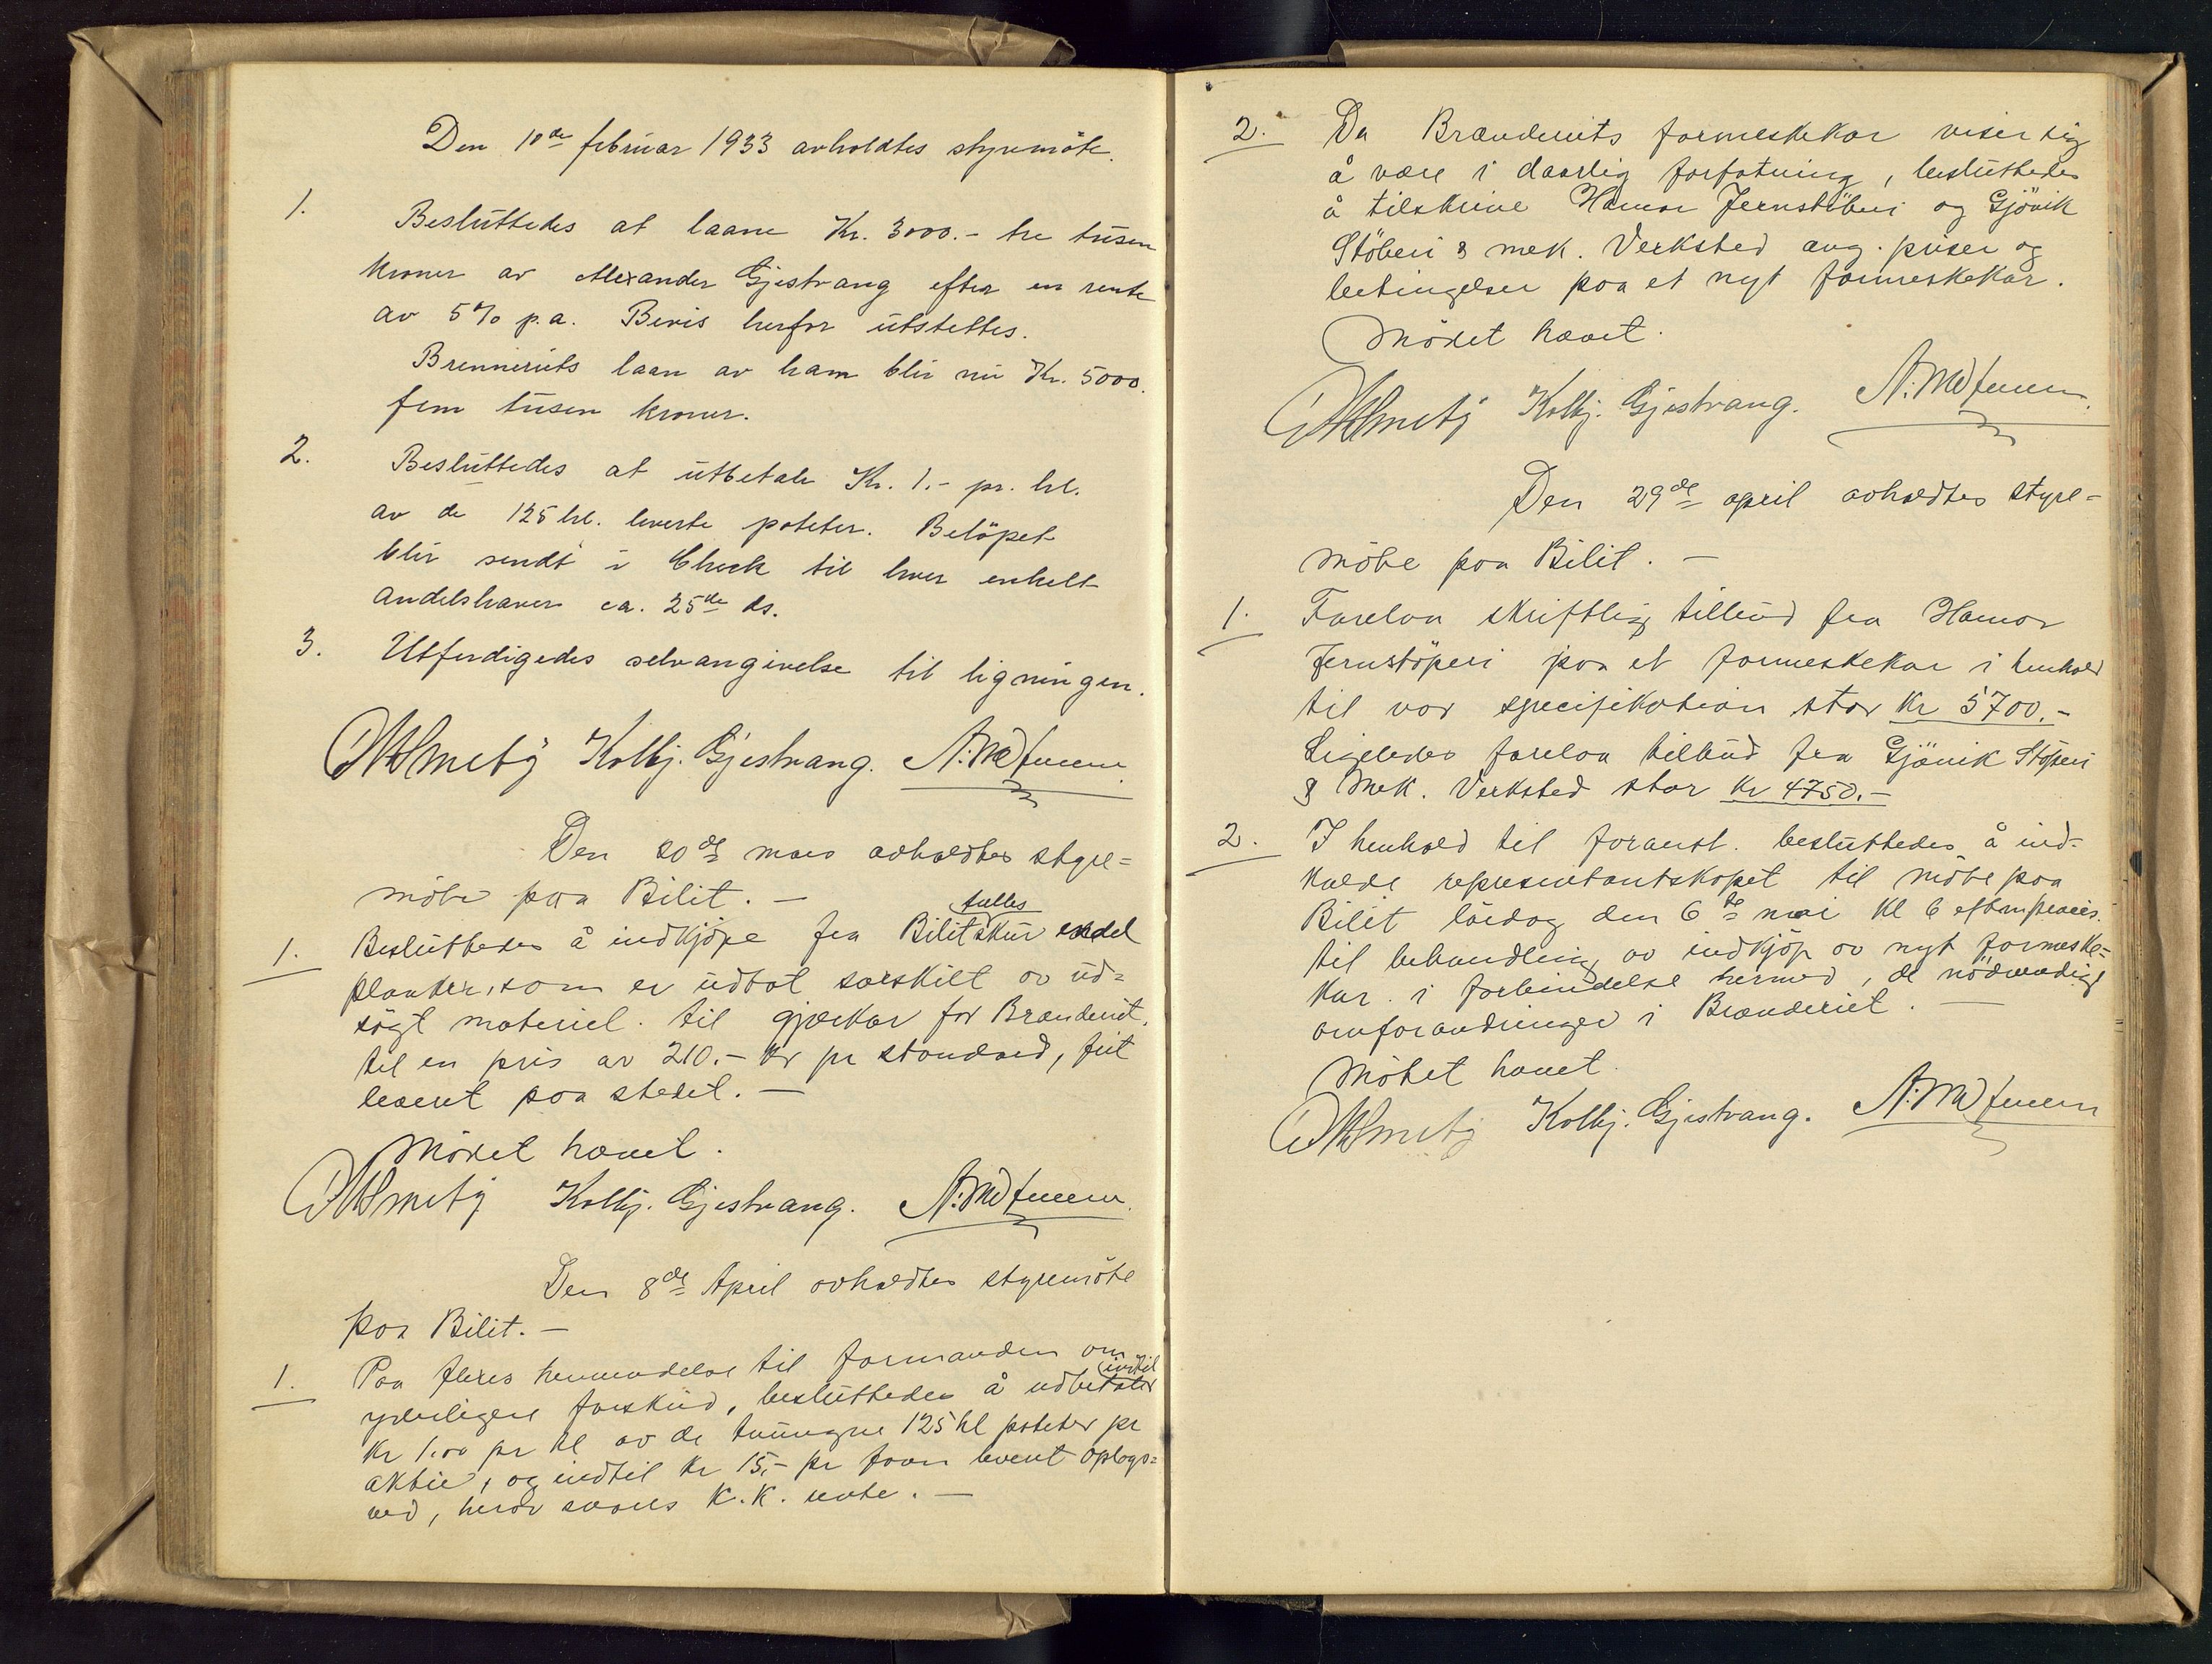 Den 10de februar 1933 avholdtes styremöte.
1. Besluttedes at laane Kr. 3000.- tre tusen
kroner av Alexander Gjestvang efter en rente
av 5% p.a. Bevis herfor utstettes.
Brenneriets laan av ham blir nu Kr. 5000.
fem tusen kroner.
2. Besluttedes at utbetale Kr. 1.- pr. hl.
av de 125 hl. leverte poteter. Belöpet
blir sendt i Check til hver enkelt
andelshaver ca. 25de ds.
3. Utferdigedes selvangivelse til ligningen.
Kolbj. Gjestvang.
Den 20de mars avholdtes styre=
möte paa Bilit. -
1. Besluttedes å indkjöpe fra Bilit fælles skur endel
planker, som er udtat særskilt av ud=
sögt materiel. til gjærkar for Brænderiet,
til en pris av 210.- Kr pr standard, frit
leveret paa stedet. -
Mödet hævet.
Kolbj. Gjestvang.
Den 8de April avholdtes styremöte
paa Bilit. -
1. Paa fleres henvendelse til formanden om
yderligere forskud, besluttedes å udbetaler indtil
Kr 1.00 pr hl av de tvungne 125 hl poteter pr
aktie, og indtil Kr 15,- pr favn levert oplags=
ved, herav svares K.K. rente. -
2. Da Brænderiets formeskekar viser sig
å være i daarlig forfatning, besluttedes
å tilskrive Hamar Jernstöberi og Gjövik
Stöberi & mek. Verksted ang. priser og
betingelser paa et nyt formeskekar.
Mödet hævet.
Kolbj. Gjestvang.
Den 29de april avholdtes styre=
möte paa Bilit. -
1. Forelaa skriftlig tilbud fra Hamar
Jernstöperi paa et formeskekar i henhold
til vor specifikation stor Kr 5700.-
Ligeledes forelaa tilbud fra Gjövik Stöperi
& Mek. Verksted stor Kr 4750.-
2. I henhold til foranst. besluttedes å ind=
kalde representantskapet til möte paa
Bilit lördag den 6te mai Kl 6 eftm precis.
til behandling av indkjöp av nyt formeske=
kar. i forbindelse hermed, de nödvendige
omforandringer i Brænderiet. -
Mötet hævet.
Kolbj. Gjestvang.